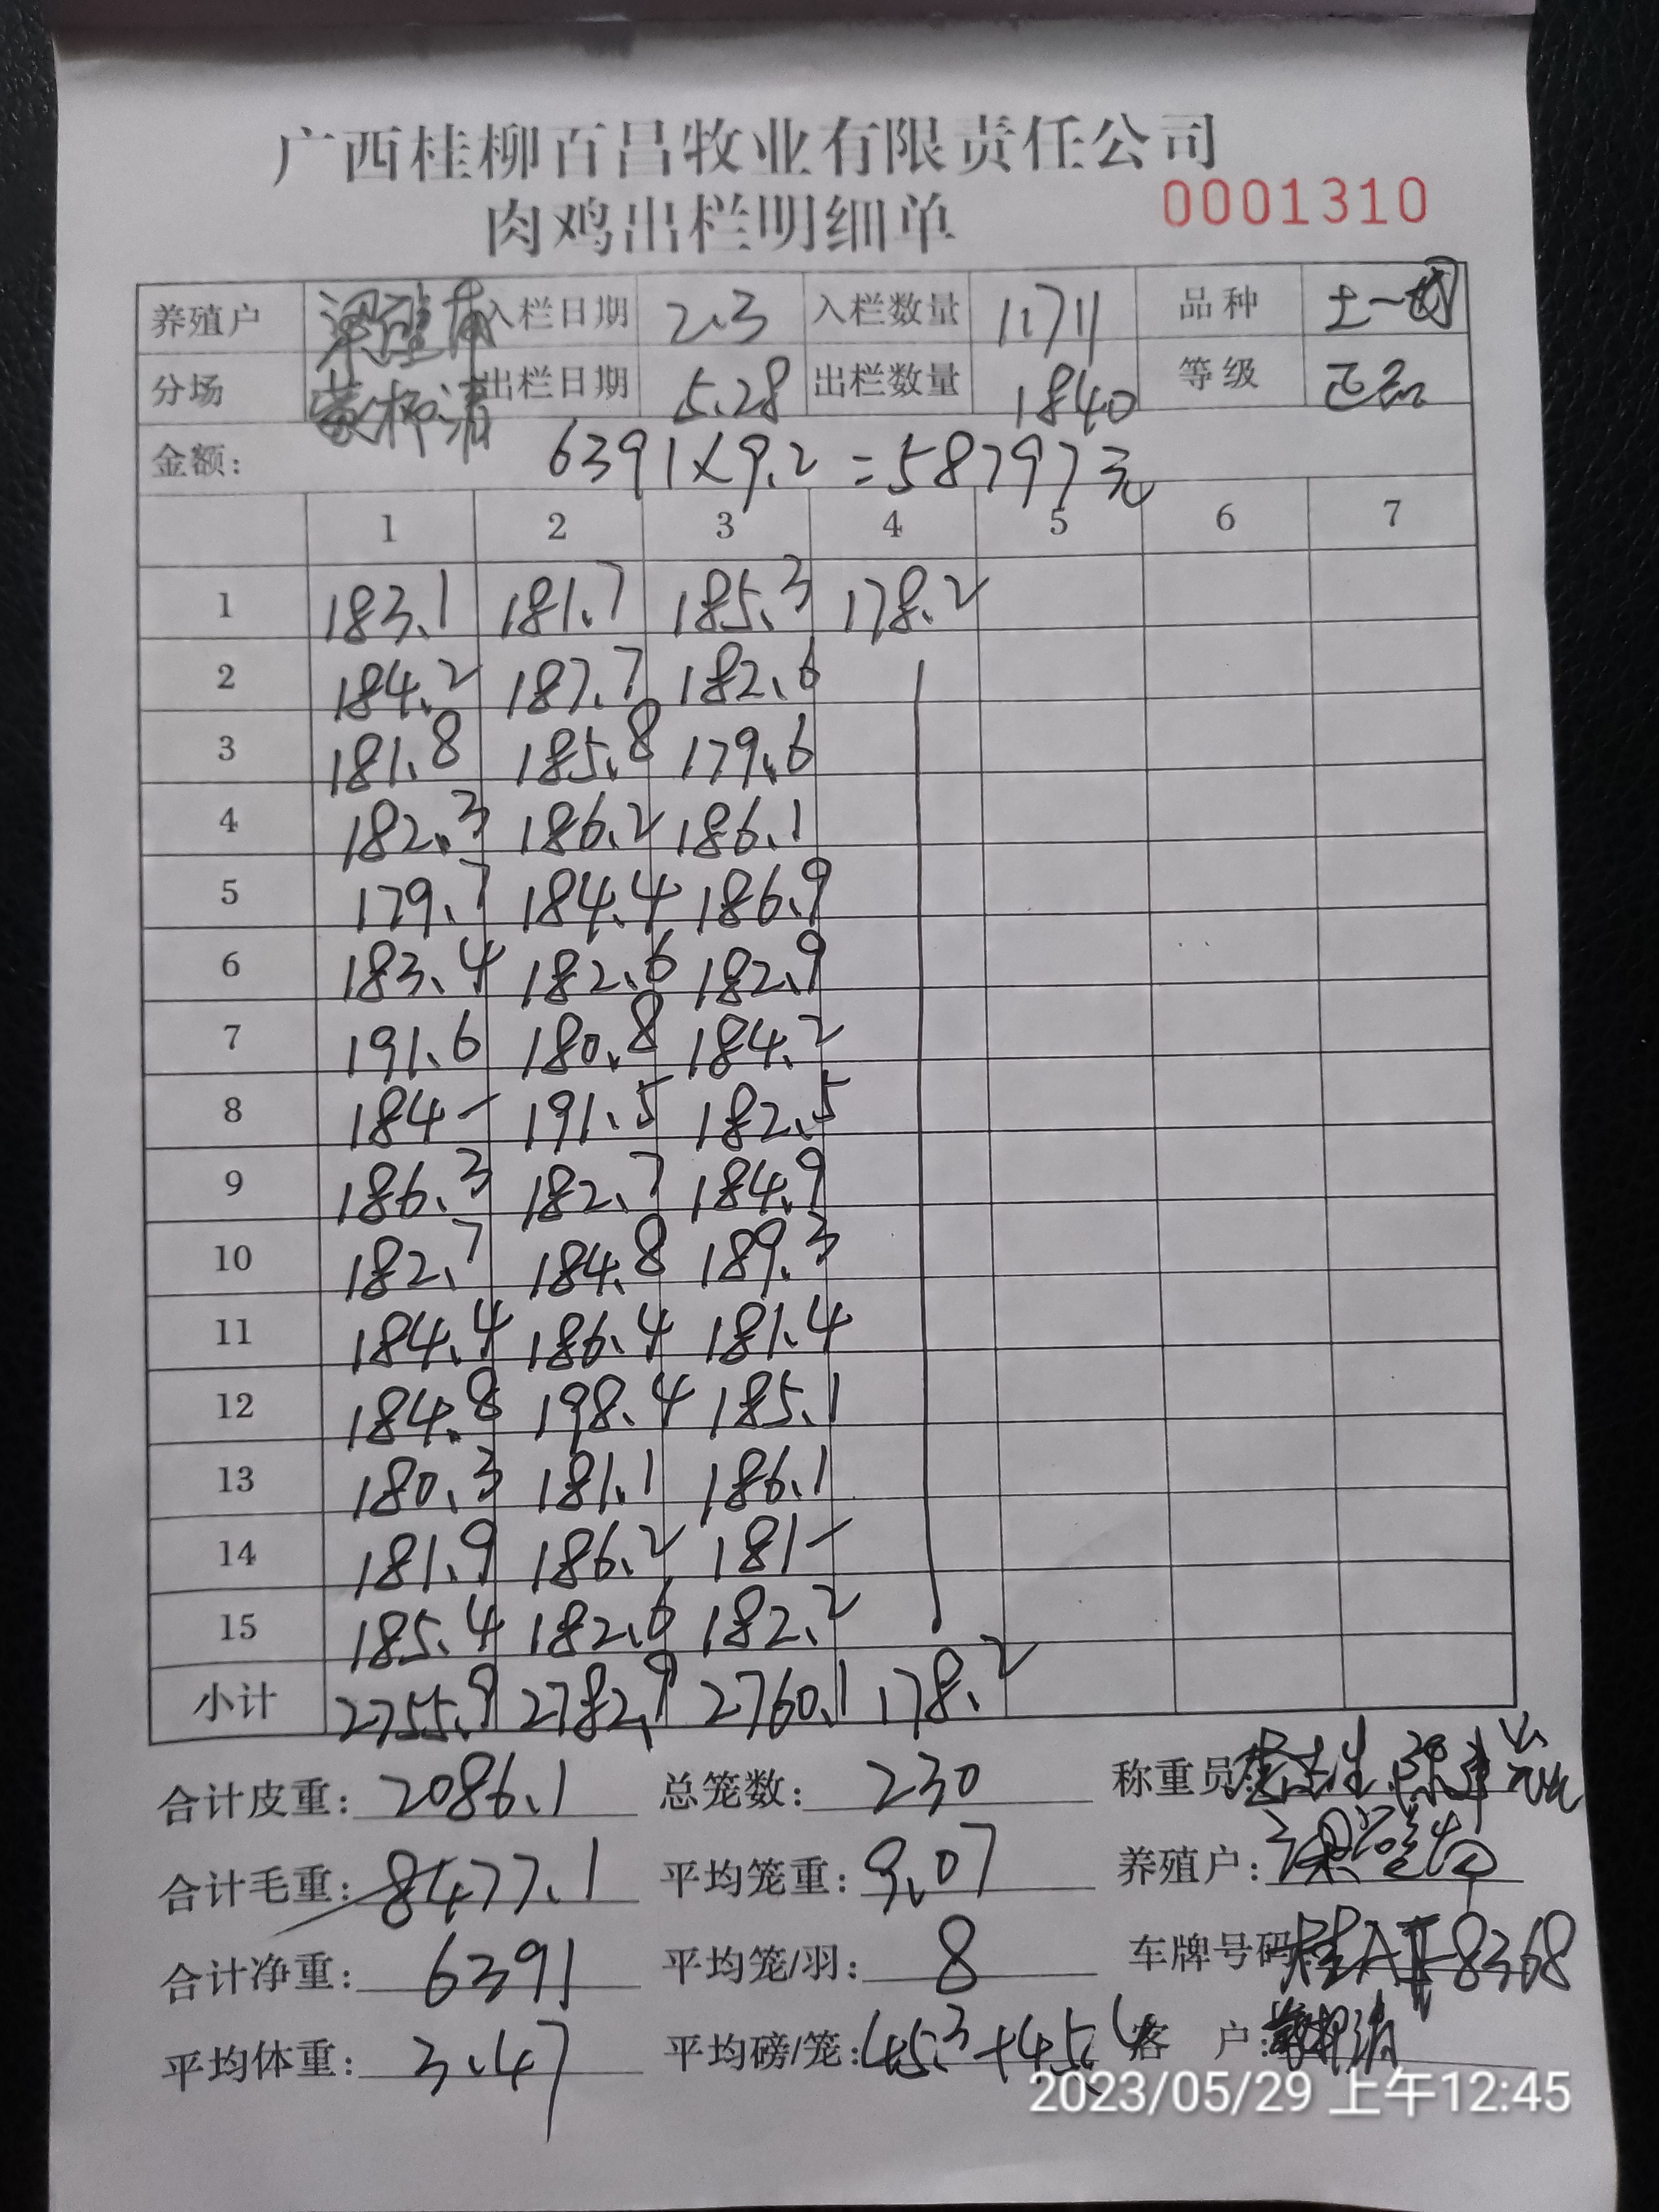 广西桂柳百昌牧业有限责任公司
肉鸡出栏明细单 0001310
养殖户 入栏日期 2.3 入栏数量 11711 品种 土一
分场 黄柳清 出栏日期 5.28 出栏数量 1840 等级 正品
金额: 6391×9.2=58797元
1 2 3 4 5 6 7
1 183.1 181.7 185.3 178.2
2 184.2 187.7 182.6
3 181.8 185.8 179.6
4 182.3 186.2 186.1
5 179.7 184.4 186.9
6 183.4 182.6 182.9
7 191.6 180.8 184.2
8 184- 191.5 182.5
9 186.3 182.7 184.9
10 182.7 184.8 189.3
11 184.4 186.4 181.4
12 184.8 198.4 185.1
13 180.3 181.1 186.1
14 181.9 186.2 181-
15 185.4 182.6 182.2
小计 2755.9 2782.9 2760.1 178.2
合计皮重: 2086.1 总笼数: 230 称重员:
合计毛重: 8477.1 平均笼重: 9.07 养殖户:
合计净重: 6391 平均笼/羽: 8 车牌号码: 8368
平均体重: 3.47 平均磅/笼: 45.3+45.4 客 户:
2023/05/29 上午12:45